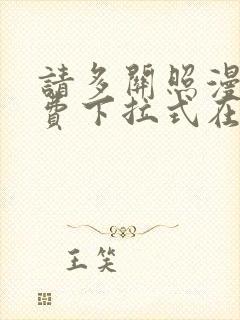 請多關照漫
費下拉式在
王笑